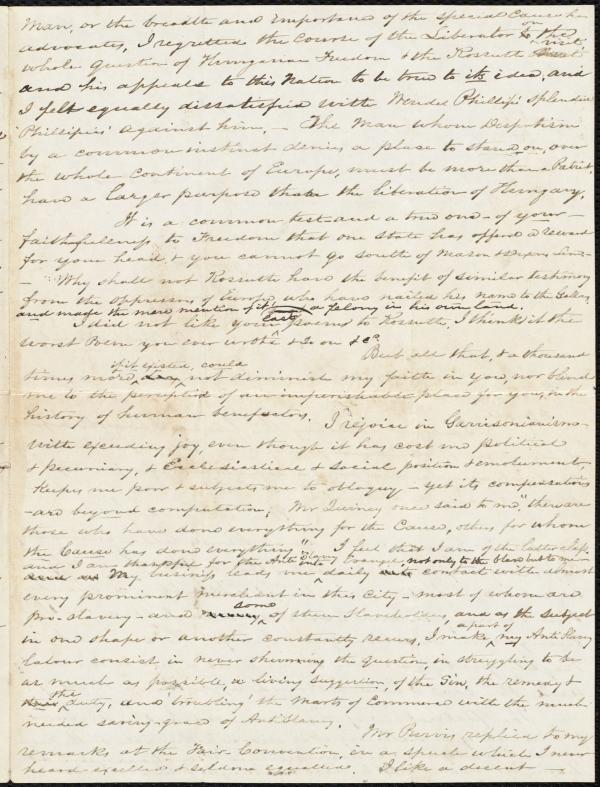 Man, or the breadth and importance of the special Cause he
advocates, I regretted the Course of the Liberator on the
whole question of Hungarian Freedom & the Kossuth visit
and his appeals to this Nation to be true to its idea, and
I felt equally dissatisfied with Wendell Phillips' splendid
Phillipics against him, – The Man whom Despotism
by a common instinct denies a place to stand on, over
the whole Continent of Europe, must be more than a Patriot,
have a larger purpose than the liberation of Hungary.
It is a common test and a true one – of your –
faithfulness to Freedom that one State has offered a reward
for your head & you cannot go South of Mason & Dixons line –
– Why shall not Kossuth have the benefit of similar testimony
from the oppressors of Europe who have nailed his name to the Gallows
and made the mere mention of it a felony in his own land.
I did not like your last poems to Kossuth, I think it the
worst Poem you ever wrote & so on & &c
But all that, & a thousand
times more, if it existed, could not diminish my faith in you, nor blind
me to the perception of an imperishable place for you, in the
history of human benefactors. I rejoice in Garrisonianism –
with exceeding joy, even though it has cost me political
& pecuniary, & Ecclesiastical & Social position & emolument,
Keeps me poor & subjects me to obloquy – yet its compensations
– are beyond computation, Mr Quincy once said to me "there are
those who have done everything for the Cause, others for whom
the Cause has done everything". I feel that I am of the latter class,
and I am thankful for the Anti Slavery Evangel, not only to the slave but to me –
My business leads me daily into contact with almost
every prominent Merchant in this City – most of whom are
pro-slavery – and some of them Slaveholders, and as the subject
in one shape or another constantly recurs, I make a part of my Anti Slavery
labour consist in never shunning the question, in struggling to be
as much as possible, a living suggestion, of the Sin, the remedy &
the duty, and troubling the Marts of Commerce with the much
needed saving-grace of Anti Slavery.
Mr Purvis replied to my
remarks at the Fair Convention, in a speech which I never
heard excelled & seldom equalled. I like a decent –